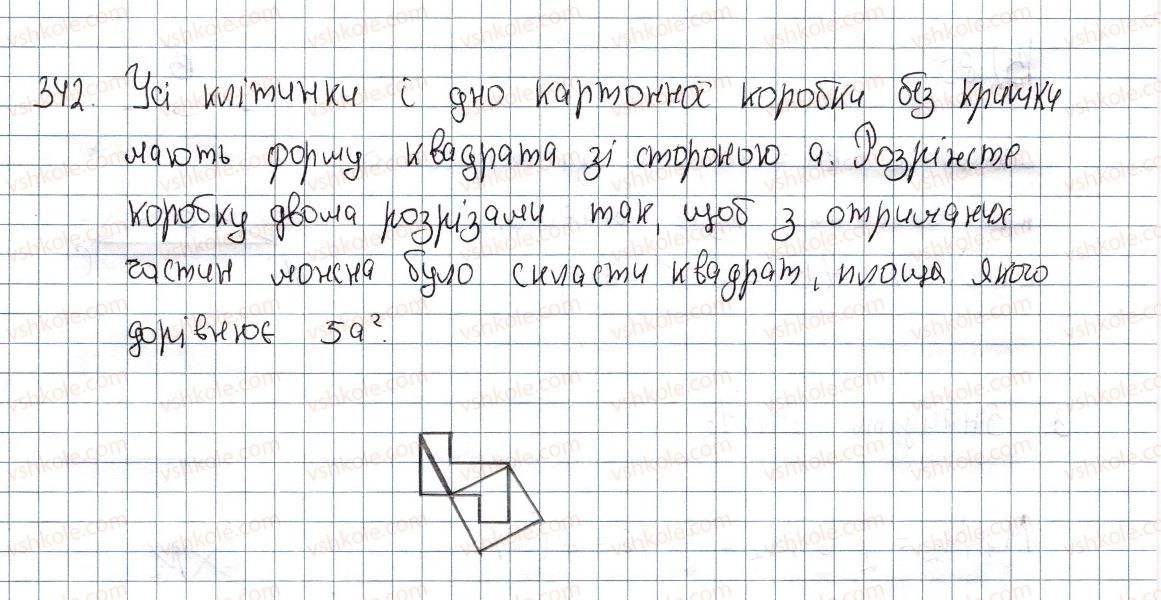 342. Усі клітинки і дно картонної коробки без кришки
мають форму квадрата зі стороною a. Розріжте
коробку двома розрізами так, щоб з отриманих
частин можна було скласти квадрат, площа якого
дорівнює 5a².